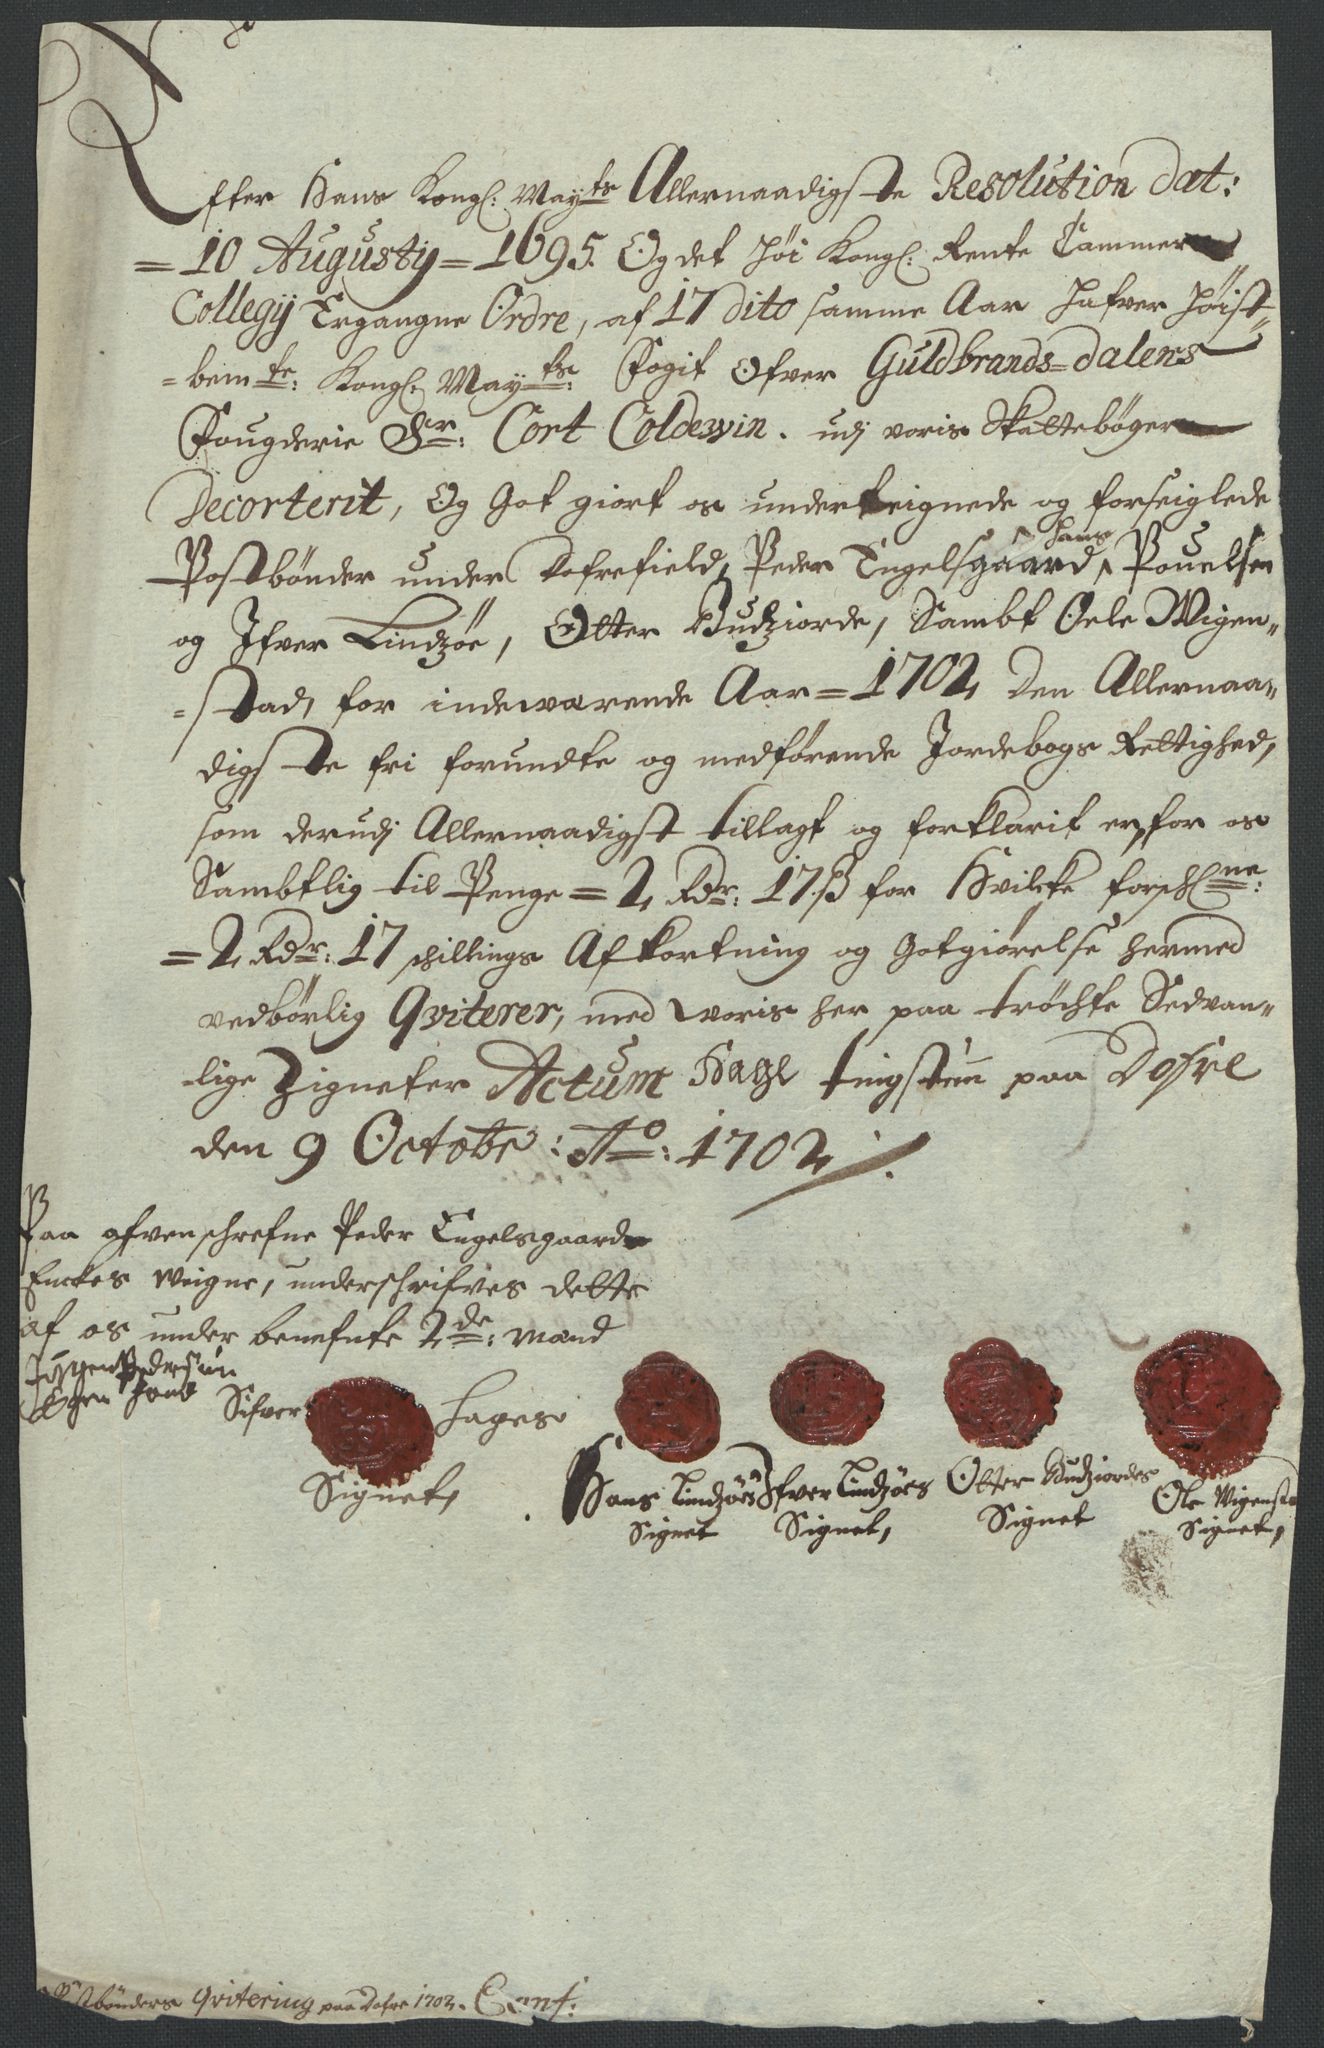 Efter Hans Kongl: May:ts Allernaadigste Resolution Dat:
= 10 Augustij = 1695. Og det höi Kongl: Rente Cammer
Collegij Ergangne Ordre, af 17 dito samme Aar hafver höist-
= bem:te: Kongl: May:ts: Fogit Ofver Guldbrands=dalens
Fougderie Sr: Cort Coldewin. udj voris Skattebøger
Decorterit, Og Got giort os underteignede og forseiglede
Postbønder under Dofrefield, Peder Engelsgaard, Hans Pouelsen
og Ifver Lindzöe, Otter Budziorde, Sambt Oele Wigen-
= stad, for indewærende Aar = 1702, Den Allernaa-
digste fri forundte og medførende Jordebogs Rettighed,
som derudj Allernaadigst tillagt og forklarit er, for os
Sambtlig til Penge = 2 Rdr: 17 ß for Hvilcke forschl:ne:
= 2 Rdr: 17 schillings Afkortning og Gotgiørelse hermed
vedbørlig Qviterer, med woris her paa tröchte Sedvan-
lige Zigneter Actum tingstuu paa Dofre
den 9 Octobr: Ao: 1702
Paa ofvenschrefne Peder Engelsgaards
Enckes Weigne, underschrifves dette
af os under benefnte 2de: Mænd
Pedersøn
Sifver Hages
Signet,
Hans Lindzöes
Signet
Ifver Lindzöes
Signet,
Otter Budziordes
Signet
Ole Wigensta
Signet,
Postbönders Qvitering paa Dofre 1702.